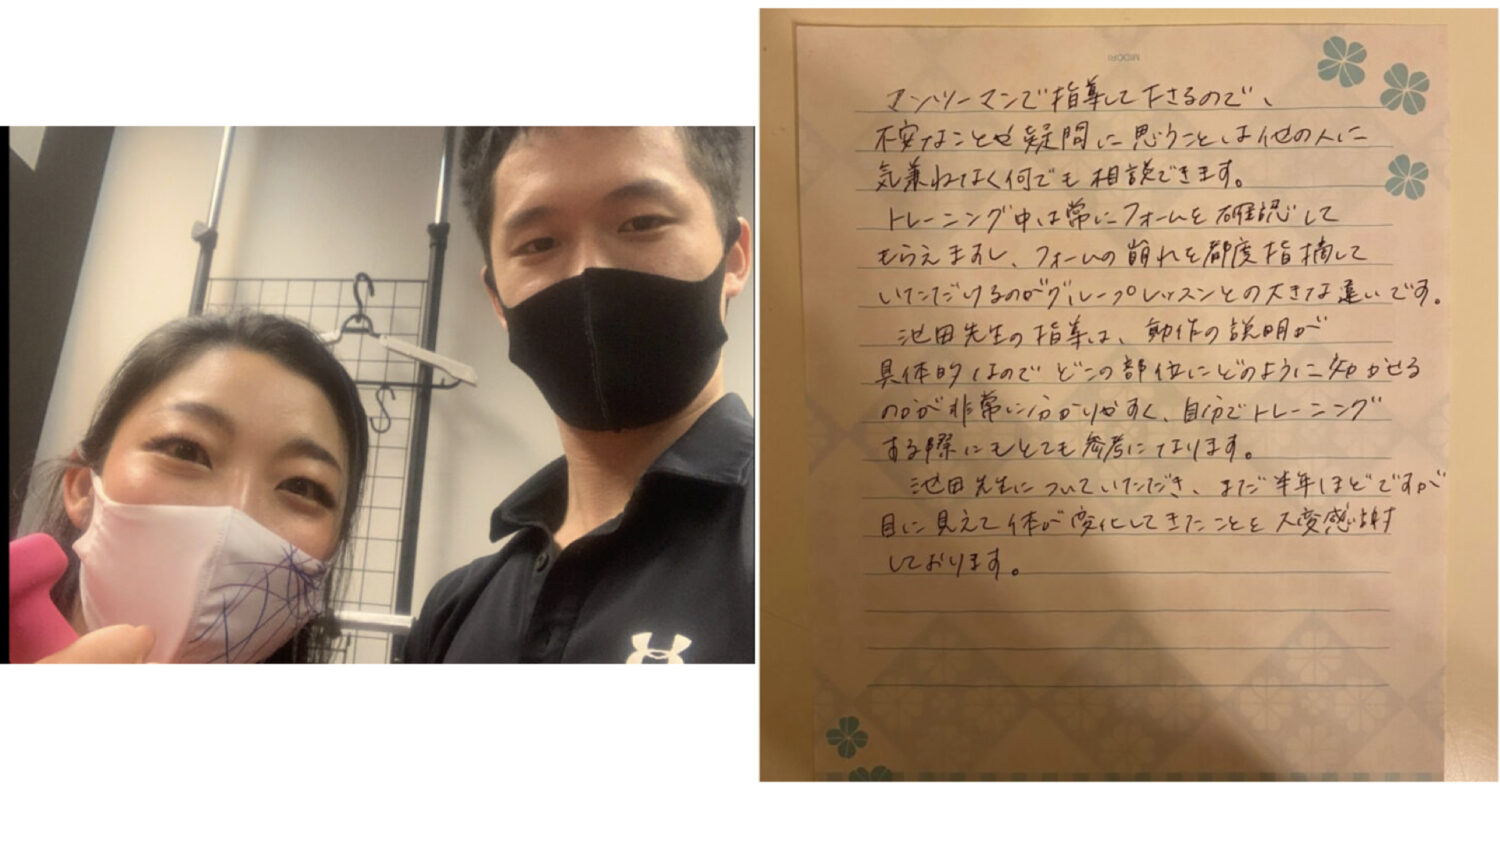 MIDORI
マンツーマンで指導して下さるので、
不安なことや疑問に思うことは他の人に
気兼ねなく何でも相談できます。
トレーニング中は常にフォームを確認して
もらえますし、フォームの崩れを都度指摘して
いただけるのがグループレッスンとの大きな違いです。
池田先生の指導は、動作の説明が
具体的なのでどこの部位にどのように効かせる
のかが非常に分かりやすく、自分でトレーニング
する際にもとても参考になります。
池田先生についていただき、まだ半年ほどですが
目に見えて体が変化してきたことを大変感謝
しております。